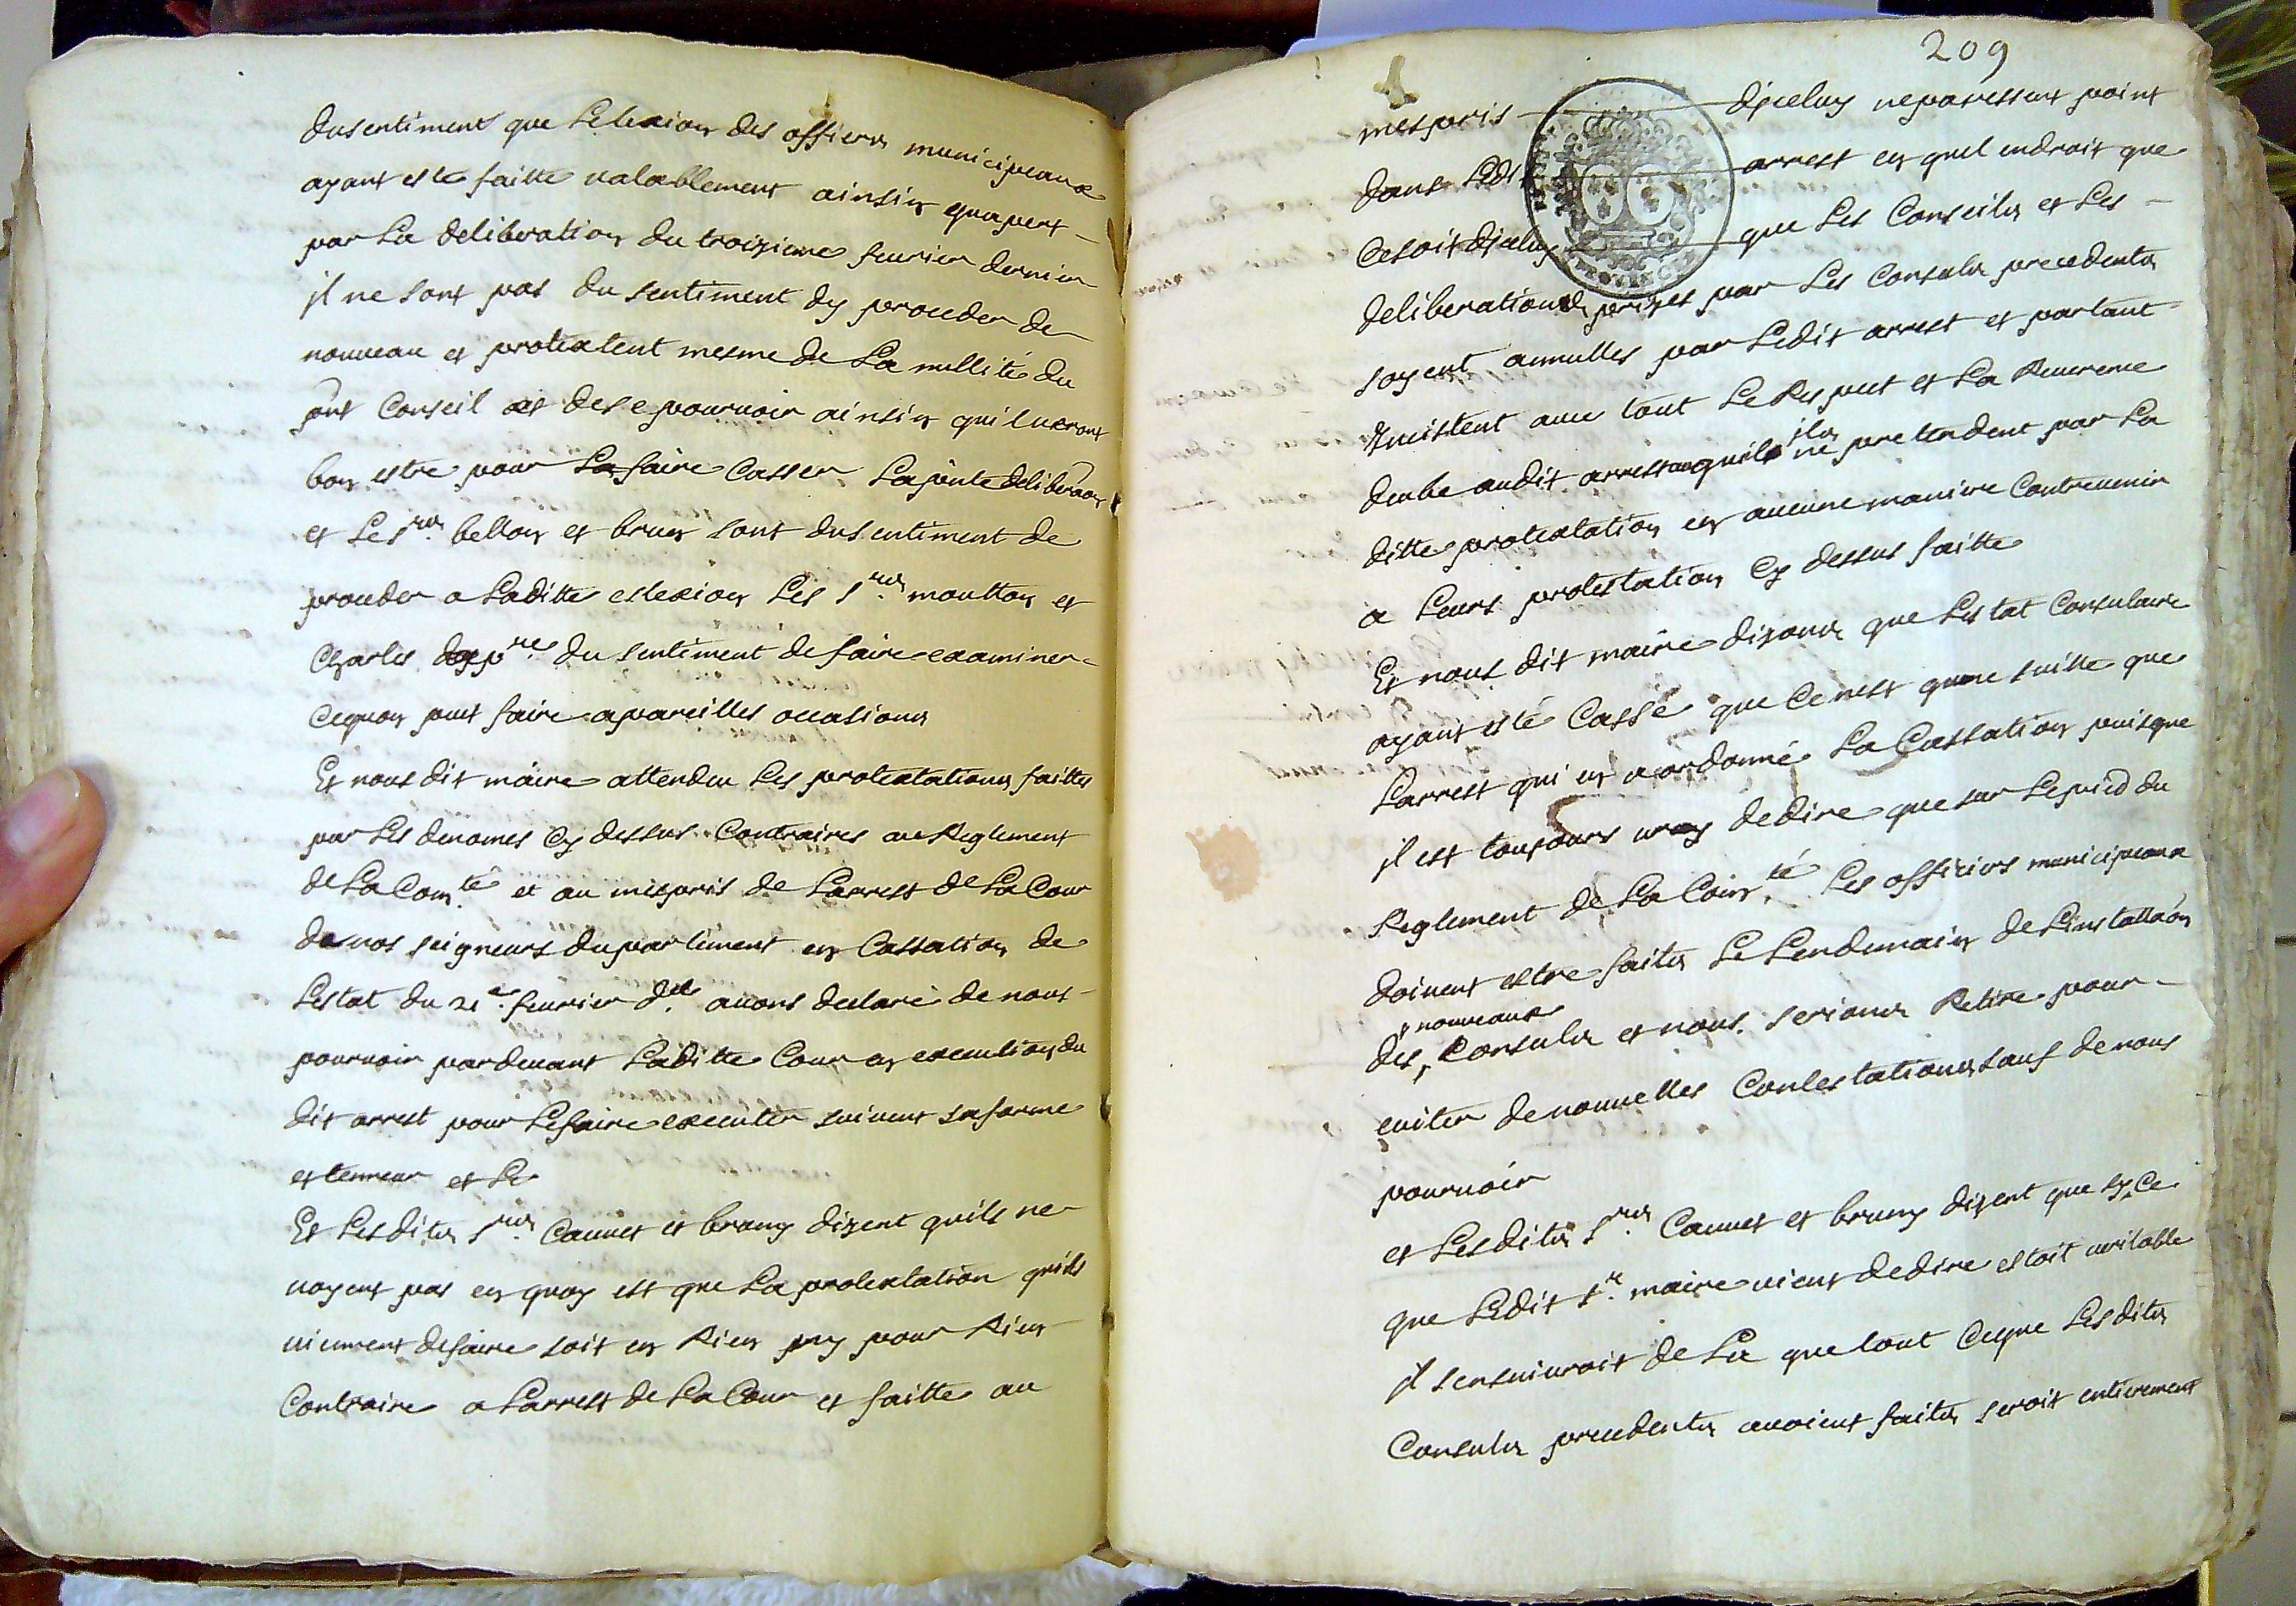 dusentiment que Lelexion des officiers municipeaux
ayant esté faitte valablement ainsin quapert
par La deliberation du troizieme feurier dernier
il ne sont pas du sentiment dy proceder de
nouveau et protextent mesme de La nullité du
pnt Conseil et dese pouruoir ainsin quil uerront
bon estre pour La faire Casser La pnte deliberaon
et Les srs bellon et brun sont dusentiment de
proceder a Laditte eslexion Les srs moutton et
Charles du sentiment de faire examiner
cequon peut faire apareilles occasions
Et nous dit maire attendeu Les protextations faittes
par Les denomes Cy dessus Contraires au Reglement
de La Comté et au mespris de Larrest de La Cour
de nos seigneurs duparlement en Cassation de
Lestat du 21e feurier dt auons declaré de nous
pouruoir pardeuant Laditte Cour en execution du
dit arrest pour Lefaire executer suiuent saforme
et tenneur et Le
Et Lesdits srs Cauuet et bruny dizent quils ne
uoyent pas en quoy est que La protextation quils
uiennent defaire soit en Rien ny pour Rien
Contraire a Larrest de La Cour et faitte au
209
mespris diceluy neparessent point
dans Ledt arrest en quel endroit que
Cesoit dicelluy que Les Conseils et Les
deliberations prizes par Les Consuls precedents
soyent annulles par Ledit arrest et partant
Incistent auec tout Le Respect et La Reuerence
deube audit arrest quils ne pretendent par La
ditte protextation en aucune maniere Contreuenir
a Leurs protestation Cy dessus faitte
Et nous dit maire dizons que Lestat Consulaire
ayant esté Cassé que Cenest quune suitte que
Larrest qui en a ordonné La Cassation puisque
il est toujours uray dedire que sur Lepied du
Reglement de La Comté Les officiers municipeaux
doiuent estre faits Le Lendemain de Linstallaon
des nouueaux Consuls et nous serions Retire pour
euiter denouuelles Contestations sauf denous
pouruoir
et Lesdits srs Cauuet et bruny dizent que sy Ce
que Ledit sr maire uient dedire estoit ueritable
il sensuiuroit de La que tout Ceque Lesdits
Consuls precedents auoient faits seroit entierement